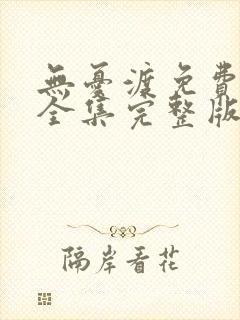 無憂渡免費
全集完整版
隔岸看花